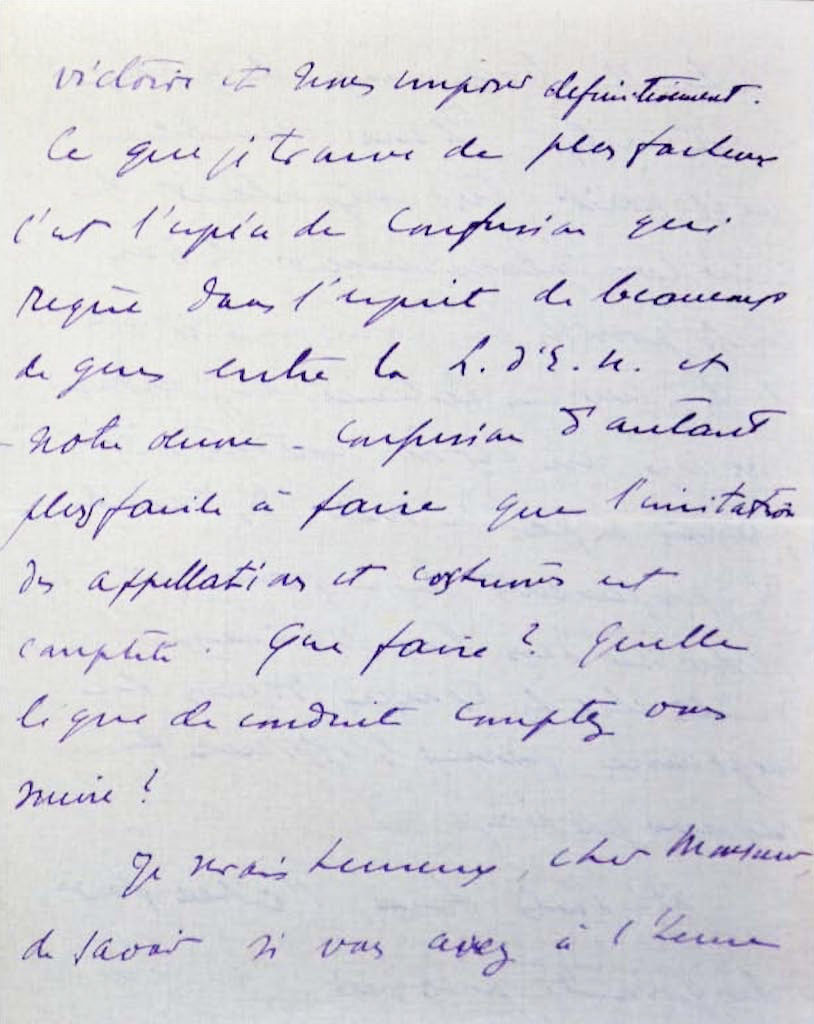 victoire et nous imposer definitivement.
Ce que je trouve de plus facheux
c'est l'espéce de confusion qui
regne dans l'esprit de beaucoup
de gens entre la L. d'E. N. et
notre œuvre - confusion d'autant
plus facile à faire que l'imitation
des appellations et costumes est
complète. Que faire ? Quelle
ligne de conduite comptez vous
suivre ?
Je serais heureux, cher Monsieur,
de savoir si vous avez à l'heure